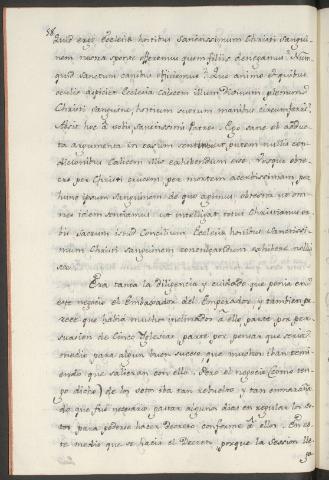 58.
Quid ergo Ecclesia hostibus Sanctissimum Christi sangui-
nem nostra sponte offeremus quem filiis denegamus? Nun-
quid sanctum canibus objiciemus? Quo animo et quibus
oculis aspiciet Ecclesia Calicem illum Divinum plenum
Christi Sanguine, hostium suorum manibus circumferri?
Absit hoc a votis Sanctissimi Patres. Ego sane et adduc-
ta argumenta in eam sententiam, putem nullis con-
ditionibus Calicem illis exhibendum esse. Vosque obse-
cro per Christi crucem, per mortem acerbissimam, per
hunc ipsum Sanguinem de quo agimus, obsecro ut om-
nes idem sentiamus ut intelligat totus Christianus or-
bis Sacrum istud Concilium Ecclesia hostibus Sanctissi-
mum Christi Sanguinem exhibere nollu-
isse.
Era tanta la diligencia y cuidado que ponia en
este negocio el Embaxador del Emperador, y tambien pa-
rece que habia muchos inclinados à ello, parte por per-
suasion de Cinco Yglesias, parte por pensar que seria
medio para algun buen suceso, que muchos iban temi-
endo que salieran con ello. Pero el negocio (como ten-
go dicho) de los votos iba tan rebuelto, y tan enmaraña-
do, que fué necesario pasar algunos dias en regular los vo-
tos para poderse hacer decreto conforme à ellos. En es-
te medio que se hacia el Decreto, porque la Session lle-
ga